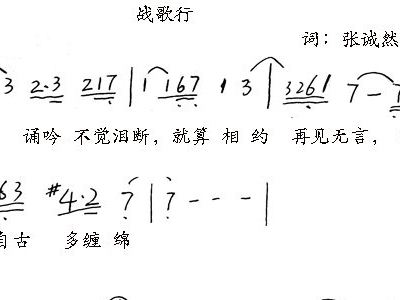 战歌行
词: 张诚然
3 2·3 217 | 1 167 1 3 | 3261 7 -
诵吟 不觉泪断，就算 相 约 再见无言，
63 #4·2 7 | 7 - - - |
自古 多缠 绵